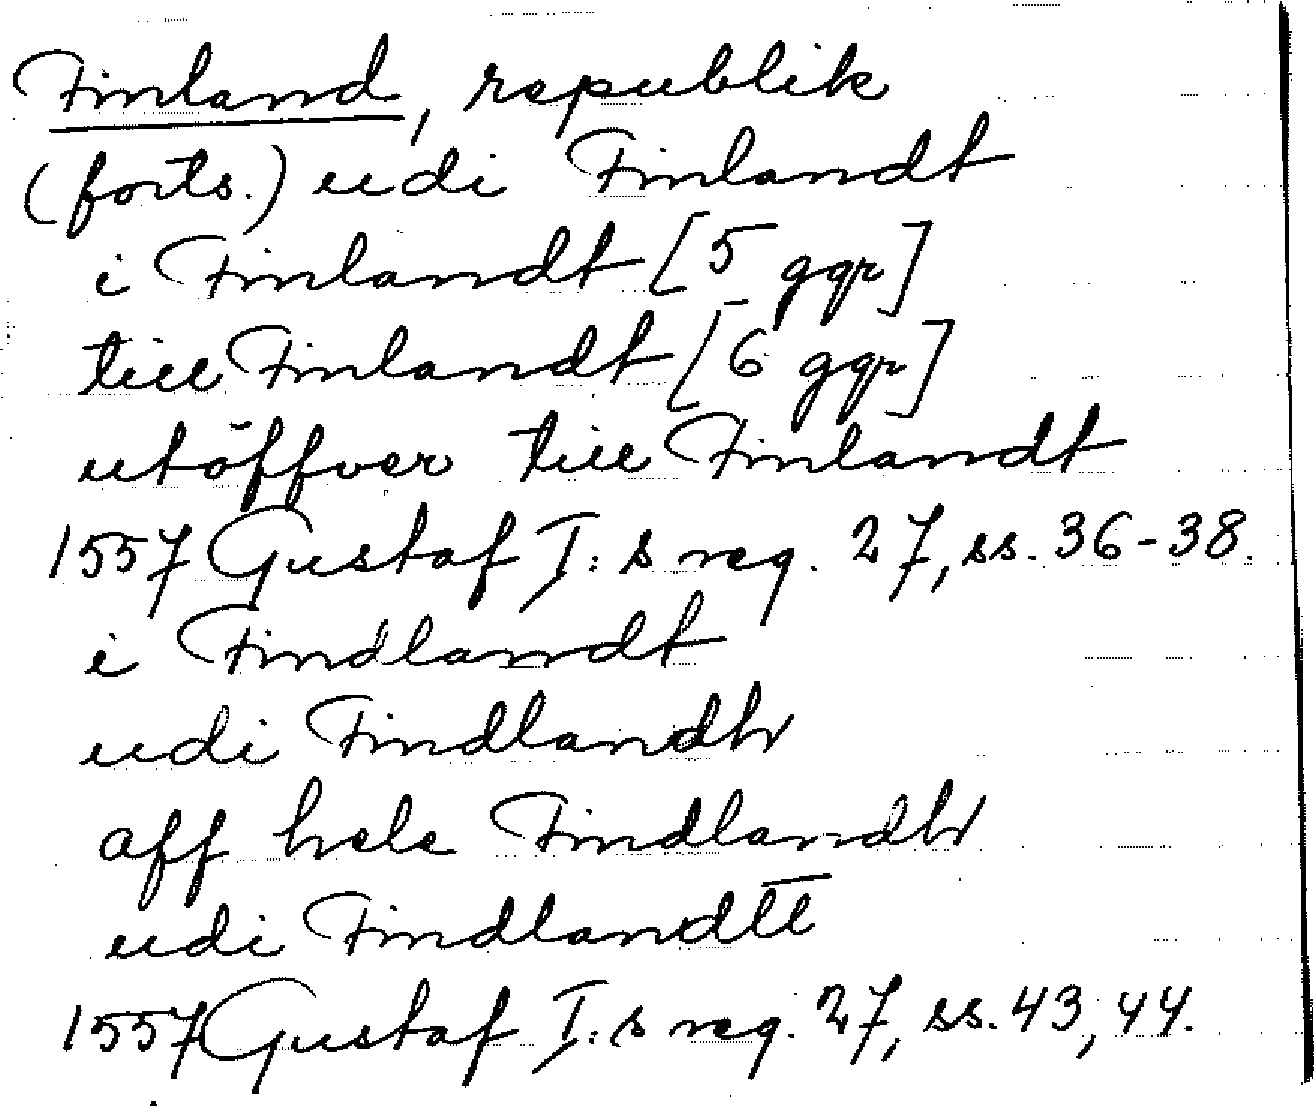 Finland, republik
(forts.) udi Finlandt
i Finlandt [5 ggr]
till Finlandt [6 ggr]
utöffver till Finlandt
1557 Gustaf I:s reg. 27, ss. 36-38.
i Findlandt
udi Findlandh
aff hele Findlandh
udi Findlandtt
1557 Gustaf I:s reg. 27, ss. 43, 44.